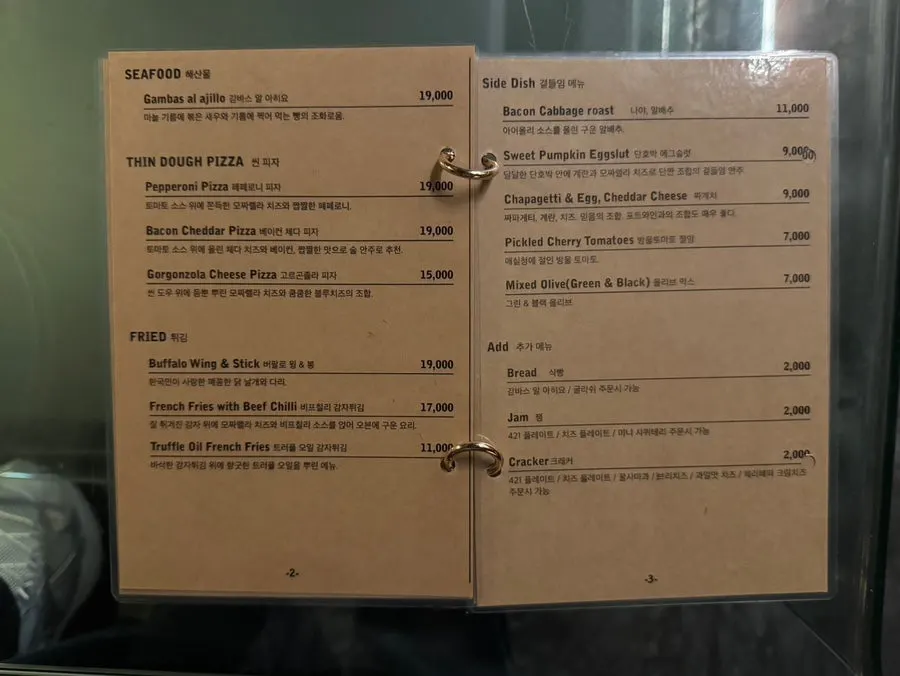 SEAFOOD 해산물
Gambas al ajillo 감바스 알 아히요 19,000
마늘 기름에 볶은 새우와 기름에 찍어 먹는 빵의 조화로움.
THIN DOUGH PIZZA 씬 피자
Pepperoni Pizza 페페로니 피자 19,000
토마토 소스 위에 쫀득한 모짜렐라 치즈와 짭짤한 페페로니.
Bacon Cheddar Pizza 베이컨 체다 피자 19,000
토마토 소스 위에 올린 체다 치즈와 베이컨, 짭짤한 맛으로 술 안주로 추천.
Gorgonzola Cheese Pizza 고르곤졸라 피자 15,000
씬 도우 위에 듬뿍 뿌린 모짜렐라 치즈와 쿰쿰한 블루치즈의 조합.
FRIED 튀김
Buffalo Wing & Stick 버팔로 윙 & 봉 19,000
한국인이 사랑한 매콤한 닭 날개와 다리.
French Fries with Beef Chilli 비프칠리 감자튀김 17,000
잘 튀겨진 감자 위에 모짜렐라 치즈와 비프칠리 소스를 얹어 오븐에 구운 요리.
Truffle Oil French Fries 트러플 오일 감자튀김 11,000
바삭한 감자튀김 위에 향긋한 트러플 오일을 뿌린 메뉴.
-2-
Side Dish 곁들임 메뉴
Bacon Cabbage roast 알배추 11,000
아이올리 소스를 올린 구운 알배추.
Sweet Pumpkin Eggslut 단호박 에그슬럿 9,000
달달한 단호박 안에 계란과 모짜렐라 치즈로 단짠 조합의 곁들임 안주.
Chapagetti & Egg, Cheddar Cheese 짜계치 9,000
짜파게티, 계란, 치즈. 믿음의 조합. 포트와인과의 조합도 매우 좋다.
Pickled Cherry Tomatoes 방울토마토 절임 7,000
매실청에 절인 방울 토마토.
Mixed Olive(Green & Black) 올리브 믹스 7,000
그린 & 블랙 올리브
Add 추가 메뉴
Bread 식빵 2,000
감바스 알 아히요 / 굴라쉬 주문시 가능
Jam 잼 2,000
421 플레이트 / 치즈 플레이트 / 미니 샤퀴테리 주문시 가능
Cracker 크래커 2,000
421 플레이트 / 치즈 플레이트 / 꿀사과 / 브리치즈 / 과일맛 치즈 / 크림치즈
주문시 가능
-3-